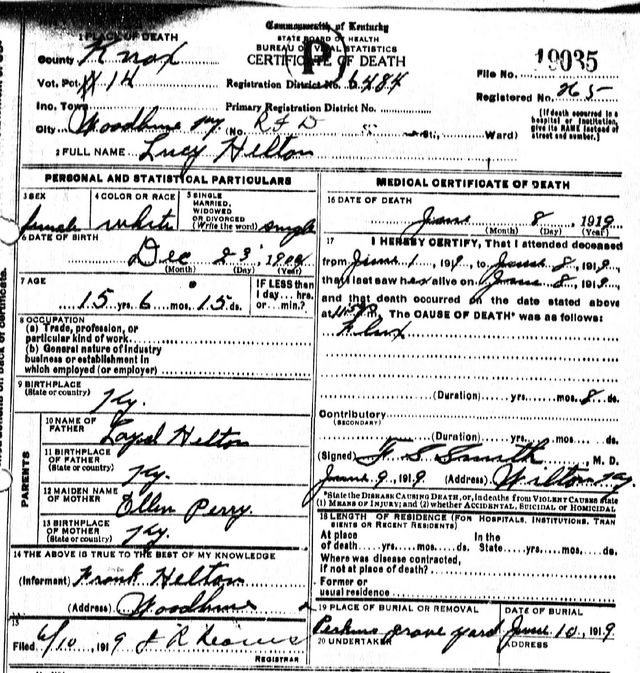 Commonwealth of Kentucky
STATE BOARD OF HEALTH
BUREAU OF VITAL STATISTICS
CERTIFICATE OF DEATH
1 PLACE OF DEATH
County Knox
Vot. Pct. # 14
Registration District No. 6484
File No. 19035
Registered No. 265
Inc. Town
Primary Registration District No.
City Woodbine Ky (No. R F D St.; Ward)
[If death occurred in a hospital or institution, give its NAME instead of street and number.]
2 FULL NAME Lucy Helton
PERSONAL AND STATISTICAL PARTICULARS
3 SEX female
4 COLOR OR RACE white
5 SINGLE MARRIED, WIDOWED OR DIVORCED (Write the word) single
6 DATE OF BIRTH
Dec 23
(Month) (Day) (Year)
7 AGE
15 yrs. 6 mos. 15 ds.
IF LESS than 1 day... hrs. or... min.?
8 OCCUPATION
(a) Trade, profession, or particular kind of work
(b) General nature of industry
business or establishment in
which employed (or employer)
9 BIRTHPLACE
(State or country) Ky.
PARENTS
10 NAME OF FATHER Helton
11 BIRTHPLACE OF FATHER (State or country) Ky.
12 MAIDEN NAME OF MOTHER Ellen Perry
13 BIRTHPLACE OF MOTHER (State or country) Ky.
14 THE ABOVE IS TRUE TO THE BEST OF MY KNOWLEDGE
(Informant) Frank Helton
(Address) Woodbine
15
Filed 6/10, 1919
REGISTRAR
MEDICAL CERTIFICATE OF DEATH
16 DATE OF DEATH
June 8, 1919
(Month) (Day) (Year)
17 I HEREBY CERTIFY, That I attended deceased
from June 1, 1919, to June 8, 1919,
that I last saw her alive on June 8, 1919,
and that death occurred on the date stated above
at m. The CAUSE OF DEATH* was as follows:
Flux
(Duration) yrs. mos. 8 ds.
Contributory
(SECONDARY)
(Duration) yrs. mos. ds.
(Signed) Smith, M. D.
June 9, 1919 (Address) Wilton Ky.
*State the DISEASE CAUSING DEATH, or, in deaths from VIOLENT CAUSES state
(1) MEANS OF INJURY; and (2) whether ACCIDENTAL, SUICIDAL or HOMICIDAL
18 LENGTH OF RESIDENCE (FOR HOSPITALS, INSTITUTIONS, TRANSIENTS OR RECENT RESIDENTS)
At place of death yrs. mos. ds.
In the State yrs. mos. ds.
Where was disease contracted,
if not at place of death?
Former or
usual residence
19 PLACE OF BURIAL OR REMOVAL
Perkins grave yard
DATE OF BURIAL
June 10, 1919
20 UNDERTAKER
ADDRESS